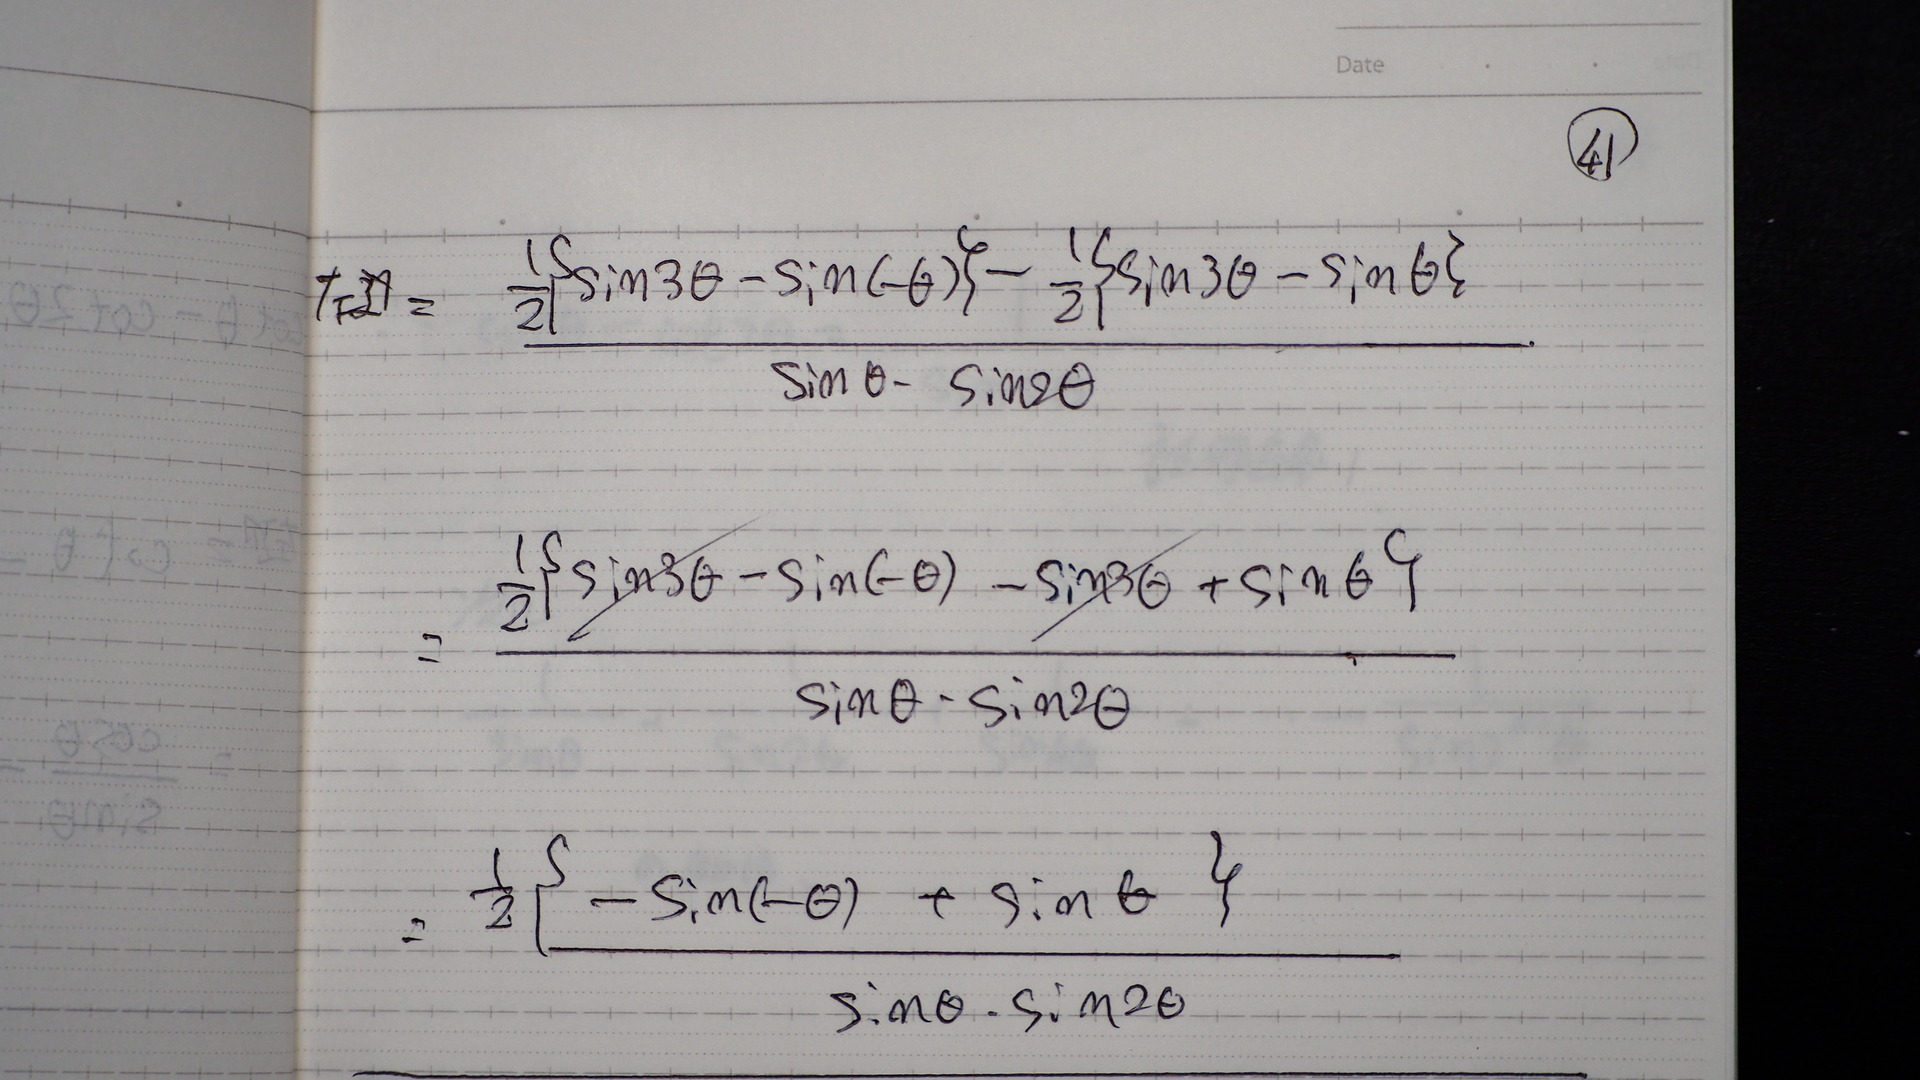 Date
41
左辺 = 1/2{sin3θ - sin(-θ)} - 1/2{sin3θ - sinθ}
sinθ - sin2θ
= 1/2{sin3θ - sin(-θ) - sin3θ + sinθ}
sinθ · sin2θ
= 1/2{-sin(-θ) + sinθ}
sinθ · sin2θ